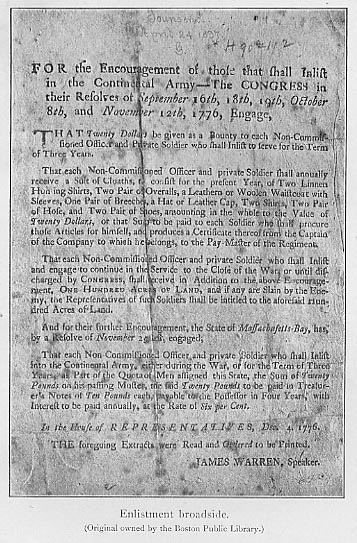 FOR the Encouragement of those that shall Inlist
in the Continental Army—The CONGRESS in
their Resolves of September 16th, 18th, 19th, October
8th, and November 12th, 1776, Engage,
THAT Twenty Dollars be given as a Bounty to each Non-Commis-
sioned Officer and Private Soldier who shall Inlist to serve for the Term
of Three Years.
That each Non-Commissioned Officer and private Soldier shall annually
receive a Suit of Cloaths, to consist for the present Year, of Two Linnen
Hunting Shirts, Two Pair of Overalls, a Leathern or Woolen Waistcoat with
Sleeves, One Pair of Breeches, a Hat or Leather Cap, Two Shirts, Two Pair
of Hose, and Two Pair of Shoes, amounting in the whole to the Value of
Twenty Dollars, or that Sum to be paid to each Soldier who shall procure
those Articles for himself, and produces a Certificate thereof from the Captain
of the Company to which he belongs, to the Pay-Master of the Regiment.
That each Non-Commissioned Officer and private Soldier who shall Inlist
and engage to continue in the Service to the Close of the War, or until dis-
charged by CONGRESS, shall receive in Addition to the above Encourage-
ment, ONE HUNDRED ACRES OF LAND, and if any are Slain by the Ene-
my, the Representatives of such Soldiers shall be intitled to the aforesaid Hun-
dred Acres of Land.
And for their further Encouragement, the State of Massachusetts-Bay, has,
by a Resolve of November engaged,
That each Non Commissioned Officer and private Soldier who shall Inlist
into the Continental Army, either during the War, or for the Term of Three
Years, as Part of the Quota of Men assigned this State, the Sum of Twenty
Pounds on his passing Muster, the said Twenty Pounds to be paid in Treasur-
er's Notes of Ten Pounds each, payable to the Possessor in Four Years, with
Interest to be paid annually, at the Rate of Six per Cent.
In the House of REPRESENTATIVES, Dec. 4, 1776.
THE foregoing Extracts were Read and Ordered to be Printed.
JAMES WARREN, Speaker.
Enlistment broadside.
(Original owned by the Boston Public Library.)